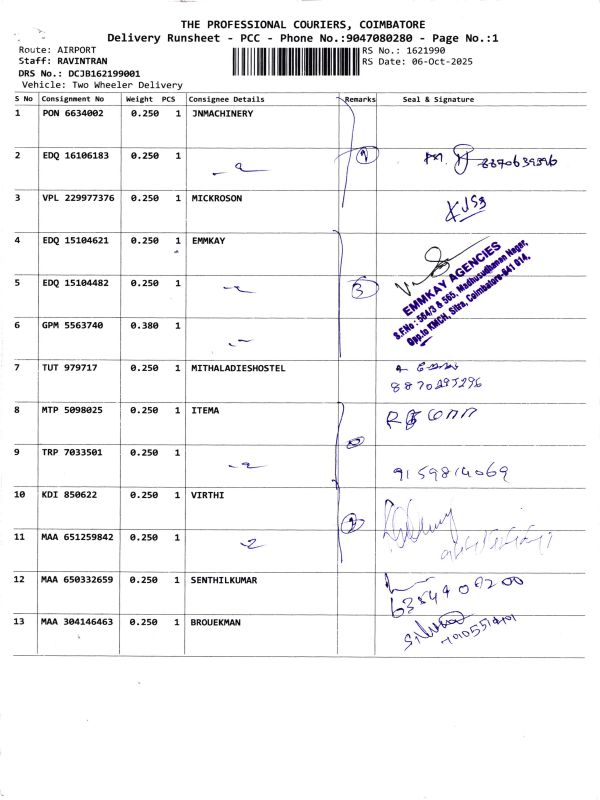 THE PROFESSIONAL COURIERS, COIMBATORE
Delivery Runsheet - PCC - Phone No.:9047080280 - Page No.:1
Route: AIRPORT RS No.: 1621990
Staff: RAVINTRAN RS Date: 06-Oct-2025
DRS No.: DCJB162199001
Vehicle: Two Wheeler Delivery
S No Consignment No Weight PCS Consignee Details Remarks Seal & Signature
1 PON 6634002 0.250 1 JNMACHINERY
2 EDQ 16106183 0.250 1
3 VPL 229977376 0.250 1 MICKROSON
4 EDQ 15104621 0.250 1 EMMKAY
EMMKAY AGENCIES
S.F.No : 564/3 & 565, Madhusudhanan Nagar,
Opp.to KMCH, Sitra, Coimbatore-641 014.
5 EDQ 15104482 0.250 1 3
6 GPM 5563740 0.380 1
7 TUT 979717 0.250 1 MITHALADIESHOSTEL
8870295296
8 MTP 5098025 0.250 1 ITEMA
9 TRP 7033501 0.250 1
9159814069
10 KDI 850622 0.250 1 VIRTHI
11 MAA 651259842 0.250 1
12 MAA 650332659 0.250 1 SENTHILKUMAR
13 MAA 304146463 0.250 1 BROUEKMAN